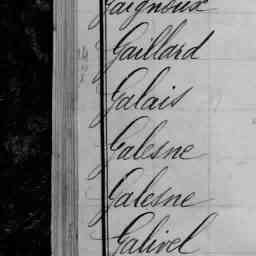 Gaignoux
Gaillard
Galais
Galesne
Galesne
Galivel